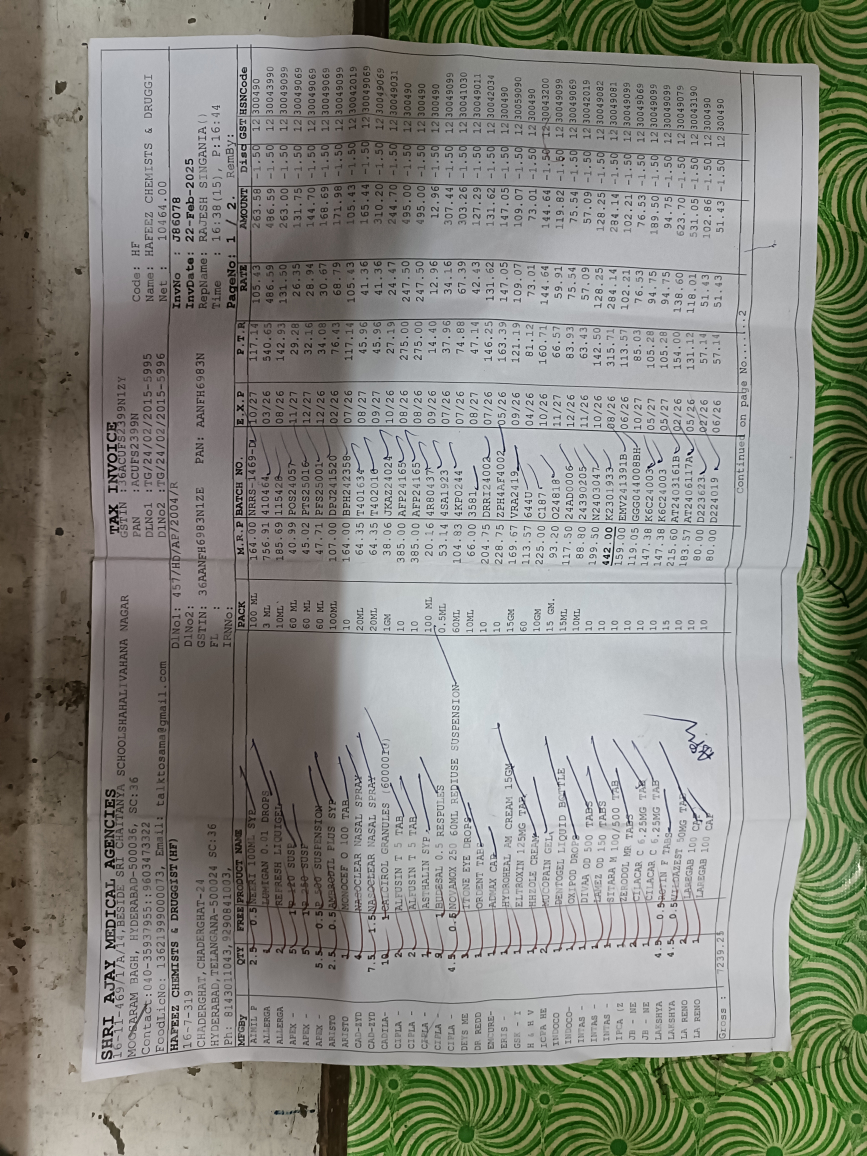 SHRI AJAY MEDICAL AGENCIES
16-11-469/1/A/14,BESIDE SRI CHAITANYA SCHOOLSHAHALIVAHANA NAGAR
MOOSARAM BAGH, HYDERABAD-500036, SC:36
Contact:040-35937955::9603473322
FoodLicNo: 13621999000073, Email: talktosama@gmail.com
TAX INVOICE
GSTIN :36ACUFS2399N1ZY
PAN : ACUFS2399N
DLNo1 :TG/24/02/2015-5995
DlNo2 :TG/24/02/2015-5996
Code: HF
Name: HAFEEZ CHEMISTS & DRUGGI
Net : 10464.00
HAFEEZ CHEMISTS & DRUGGIST(HF)
16-7-319
CHADERGHAT,CHADERGHAT-24
HYDERABAD,TELANGANA-500024 SC:36
PH: 8143011043,9290841003,
DlNo1: 457/HD/AP/2004/R
DlNo2:
GSTIN: 36AANFH6983N1ZE PAN: AANFH6983N
FL :
IRNNo:
InvNo : J86078
InvDate: 22-Feb-2025
RepName: RAJESH SINGANIA()
Time : 16:38(15), P:16:44
PageNo: 1 / 2. RemBy:
MFGBy QTY FREE PRODUCT NAME PACK M.R.P BATCH NO. E.X.P P.T.R RATE AMOUNT Disc GST HSNCode
AIMIL P 2.5 0.5 100ML SYP 100 ML 164.00 10/27 117.14 105.43 263.58 -1.50 12 300490
ALLERGA 1 LUMIGAN 0.01 DROPS 3 ML 756.91 410464 03/26 540.65 486.59 486.59 -1.50 12 30043990
ALLERGA 2 REFRESH LIQUIGEL 10ML 185.69 115428 08/26 142.93 131.50 263.00 -1.50 12 30049099
APEX - 5 SUSP 60 ML 40.99 POS24057 11/27 29.28 26.35 131.75 -1.50 12 30049069
APEX - 5 250 SUSP 60 ML 45.02 PTS25016 12/27 32.16 28.94 144.70 -1.50 12 30049069
APEX - 5.5 0.5 SUSPENSION 60 ML 47.71 PFS25001 12/26 34.08 30.67 168.69 -1.50 12 30049069
ARISTO 2.5 0.5 AMBRODIL PLUS SYP 100ML 107.00 DPJ241520 02/26 76.43 68.79 171.98 -1.50 12 30049099
ARISTO 1 MONOCEF O 100 TAB 10 164.00 BPH242358 07/26 117.14 105.43 105.43 -1.50 12 30042019
CAD-ZYD 4 NASOCLEAR NASAL SPRAY 20ML 64.35 T401634 08/27 45.96 41.36 165.44 -1.50 12 30049069
CAD-ZYD 7.5 1.5 NASOCLEAR NASAL SPRAY 20ML 64.35 T402010 09/27 45.96 41.36 310.20 -1.50 12 30049069
CADILA- 10 1 CALCIROL GRANULES (60000IU) 1GM 38.06 JKAZ24024 10/26 27.19 24.47 244.70 -1.50 12 30049031
CIPLA - 2 ALFUSIN T 5 TAB 10 385.00 AFP24165 08/26 275.00 247.50 495.00 -1.50 12 300490
CIPLA - 2 ALFUSIN T 5 TAB 10 385.00 AFP24165 08/26 275.00 247.50 495.00 -1.50 12 300490
CIPLA - 1 ASTHALIN SYP 100 ML 20.16 4R80437 09/26 14.40 12.96 12.96 -1.50 12 300490
CIPLA - 9 BUDESAL 0.5 RESPULES 0.5ML 53.14 4SA1923 07/26 37.96 34.16 307.44 -1.50 12 30049099
CIPLA - 4.5 0.5 NOVAMOX 250 60ML REDIUSE SUSPENSION 60ML 104.83 4KP0244 07/26 74.88 67.39 303.26 -1.50 12 30041030
DEYS ME 3 ITONE EYE DROPS 10ML 66.00 3581 08/27 47.14 42.43 127.29 -1.50 12 30049011
DR REDD 1 TABS 10 204.75 DRRI24002 07/26 146.25 131.62 131.62 -1.50 12 30042034
EMCURE- 1 CAP 10 228.75 ZPH4AF4002 05/26 163.39 147.05 147.05 -1.50 12 300490
ERIS - 1 HYDROHEAL AM CREAM 15GM 15GM 169.67 VRA2419 09/26 121.19 109.07 109.07 -1.50 12 30059090
GSK - I 1 ELTROXIN 125MG TAB 60 113.57 644U 04/26 81.12 73.01 73.01 -1.50 12 300490
H & H V 1 CREAM 10GM 225.00 C187 10/26 160.71 144.64 144.64 -1.50 12 30043200
ICPA HE 2 MUCOPAIN GEL 15 GM. 93.20 O24818 11/27 66.57 59.91 119.82 -1.50 12 30049099
INDOCO 1 LIQUID BOTTLE 15ML 117.50 24AD0006 12/26 83.93 75.54 75.54 -1.50 12 30049069
INDOCO- 1 OXIPOD DROPS 10ML 88.80 24390205 11/26 63.43 57.09 57.09 -1.50 12 30042019
INTAS - 1 DIVAA OD 500 TABS 10 199.50 N2403047 10/26 142.50 128.25 128.25 -1.50 12 30049082
INTAS - 1 OD 150 TABS 10 442.00 K2301933 08/26 315.71 284.14 284.14 -1.50 12 30049081
INTAS - 1 SITARA M 100 500 TAB 10 159.00 EMV241391B 06/26 113.57 102.21 102.21 -1.50 12 30049099
IPCA (Z 1 ZERODOL MR TABS 10 119.05 GPG044008BH 10/27 85.03 76.53 76.53 -1.50 12 30049069
JB - NE 2 CILACAR C 6.25MG TAB 10 147.38 K6C24003 05/27 105.28 94.75 189.50 -1.50 12 30049099
JB - NE 1 CILACAR C 6.25MG TAB 10 147.38 K6C24003 05/27 105.28 94.75 94.75 -1.50 12 30049099
LAKSHYA 4.5 0.5 F TABS 15 215.60 AT2403161B 02/26 154.00 138.60 623.70 -1.50 12 30049079
LAKSHYA 4.5 0.5 50MG TAB 10 183.57 AT2406117A 05/26 131.12 118.01 531.05 -1.50 12 30043190
LA RENO 2 LAREGAB 100 CAP 10 80.00 D223623 02/26 57.14 51.43 102.86 -1.50 12 300490
LA RENO 1 LAREGAB 100 CAP 10 80.00 D224019 06/26 57.14 51.43 51.43 -1.50 12 300490
Gross : 7239.25
Continued on page No......2